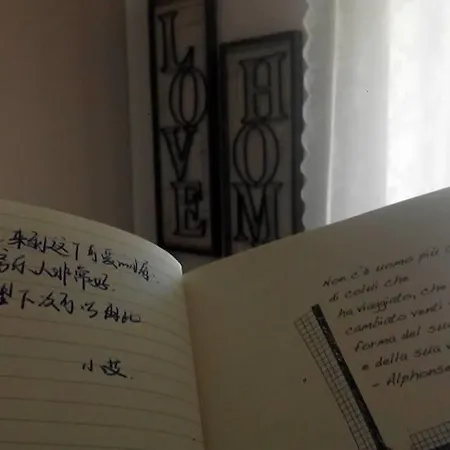 LOVE
HOM
来到这个可爱的
人非常好.
下次有
小艾.
Non c'è uomo più
di colui che
ha viaggiato, che
cambiato venti
forma del suo
e della sua
- Alphonse